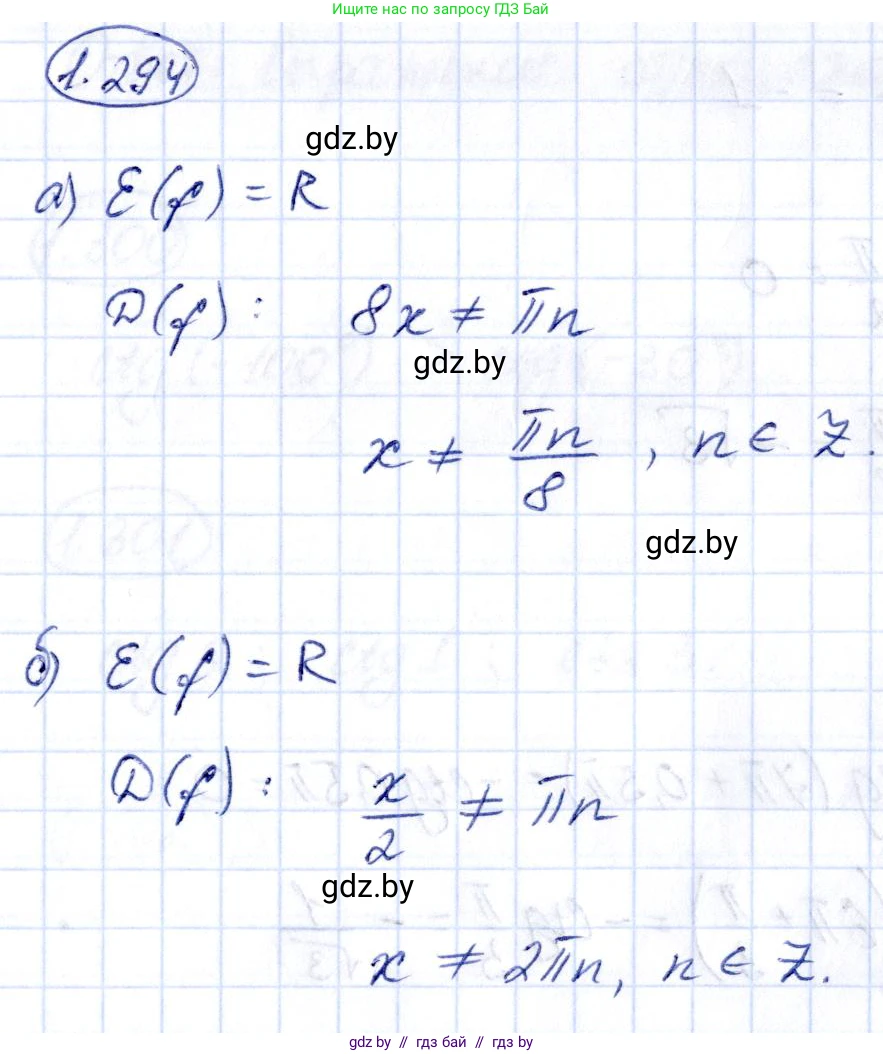 Ищите нас по запросу ГДЗ Бай
1.294
gdz.by
а) E(f) = R
D(f): 8x ≠ πn
gdz.by
x ≠ πn/8, n ∈ Z.
gdz.by
б) E(f) = R
D(f): x/2 ≠ πn
gdz.by
x ≠ 2πn, n ∈ Z.
gdz.by // гдз бай // гдз by